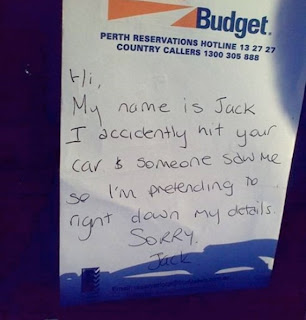 Budget
PERTH RESERVATIONS HOTLINE 13 27 27
COUNTRY CALLERS 1300 305 888
Hi,
My name is Jack
I accidently hit your
car & someone saw me
so I'm pretending to
right down my details.
SORRY.
Jack